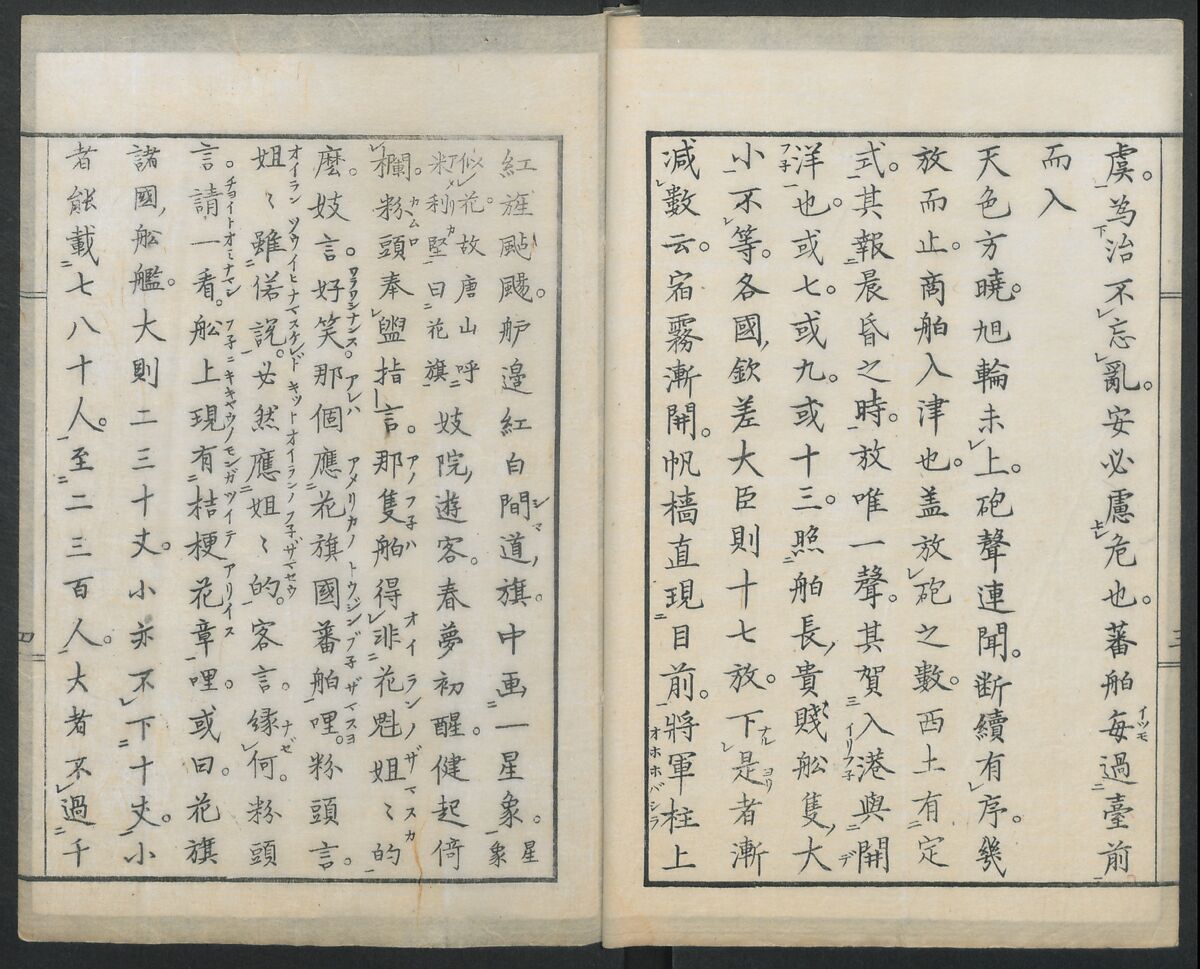 虞。為治不忘亂。安必慮危也。蕃舶每過臺前
而入
天色方曉。旭輪未上。砲聲連聞。断續有序。幾
放而止。商舶入津也。盖放砲之數。西土有定
式。其報晨昏之時。放唯一聲。其賀入港與開
洋也。或七。或九。或十三。照舶長,貴賤舩隻,大
小不等。各國,欽差大臣則十七放。下是者漸
减數云。宿霧漸開。帆檣直現目前。將軍柱上
紅旌颭颺。舮邉紅白間道,旗。中画一星象。星象
似花。故唐山呼
米利堅曰花旗妓院,遊客。春夢初醒。健起倚
欄。粉頭奉盥指言。那隻舶得非花魁姐〻的
麼。妓言。好笑那個應花旗國蕃舶哩。粉頭言。
姐〻雖偌説。必然應姐〻的。客言。縁何。粉頭
言。請一看。舩上現有桔梗花章哩。或曰。花旗
諸國,舩艦。大則二三十丈。小亦不下十丈。小
者能載七八十人。至二三百人。大者不過千